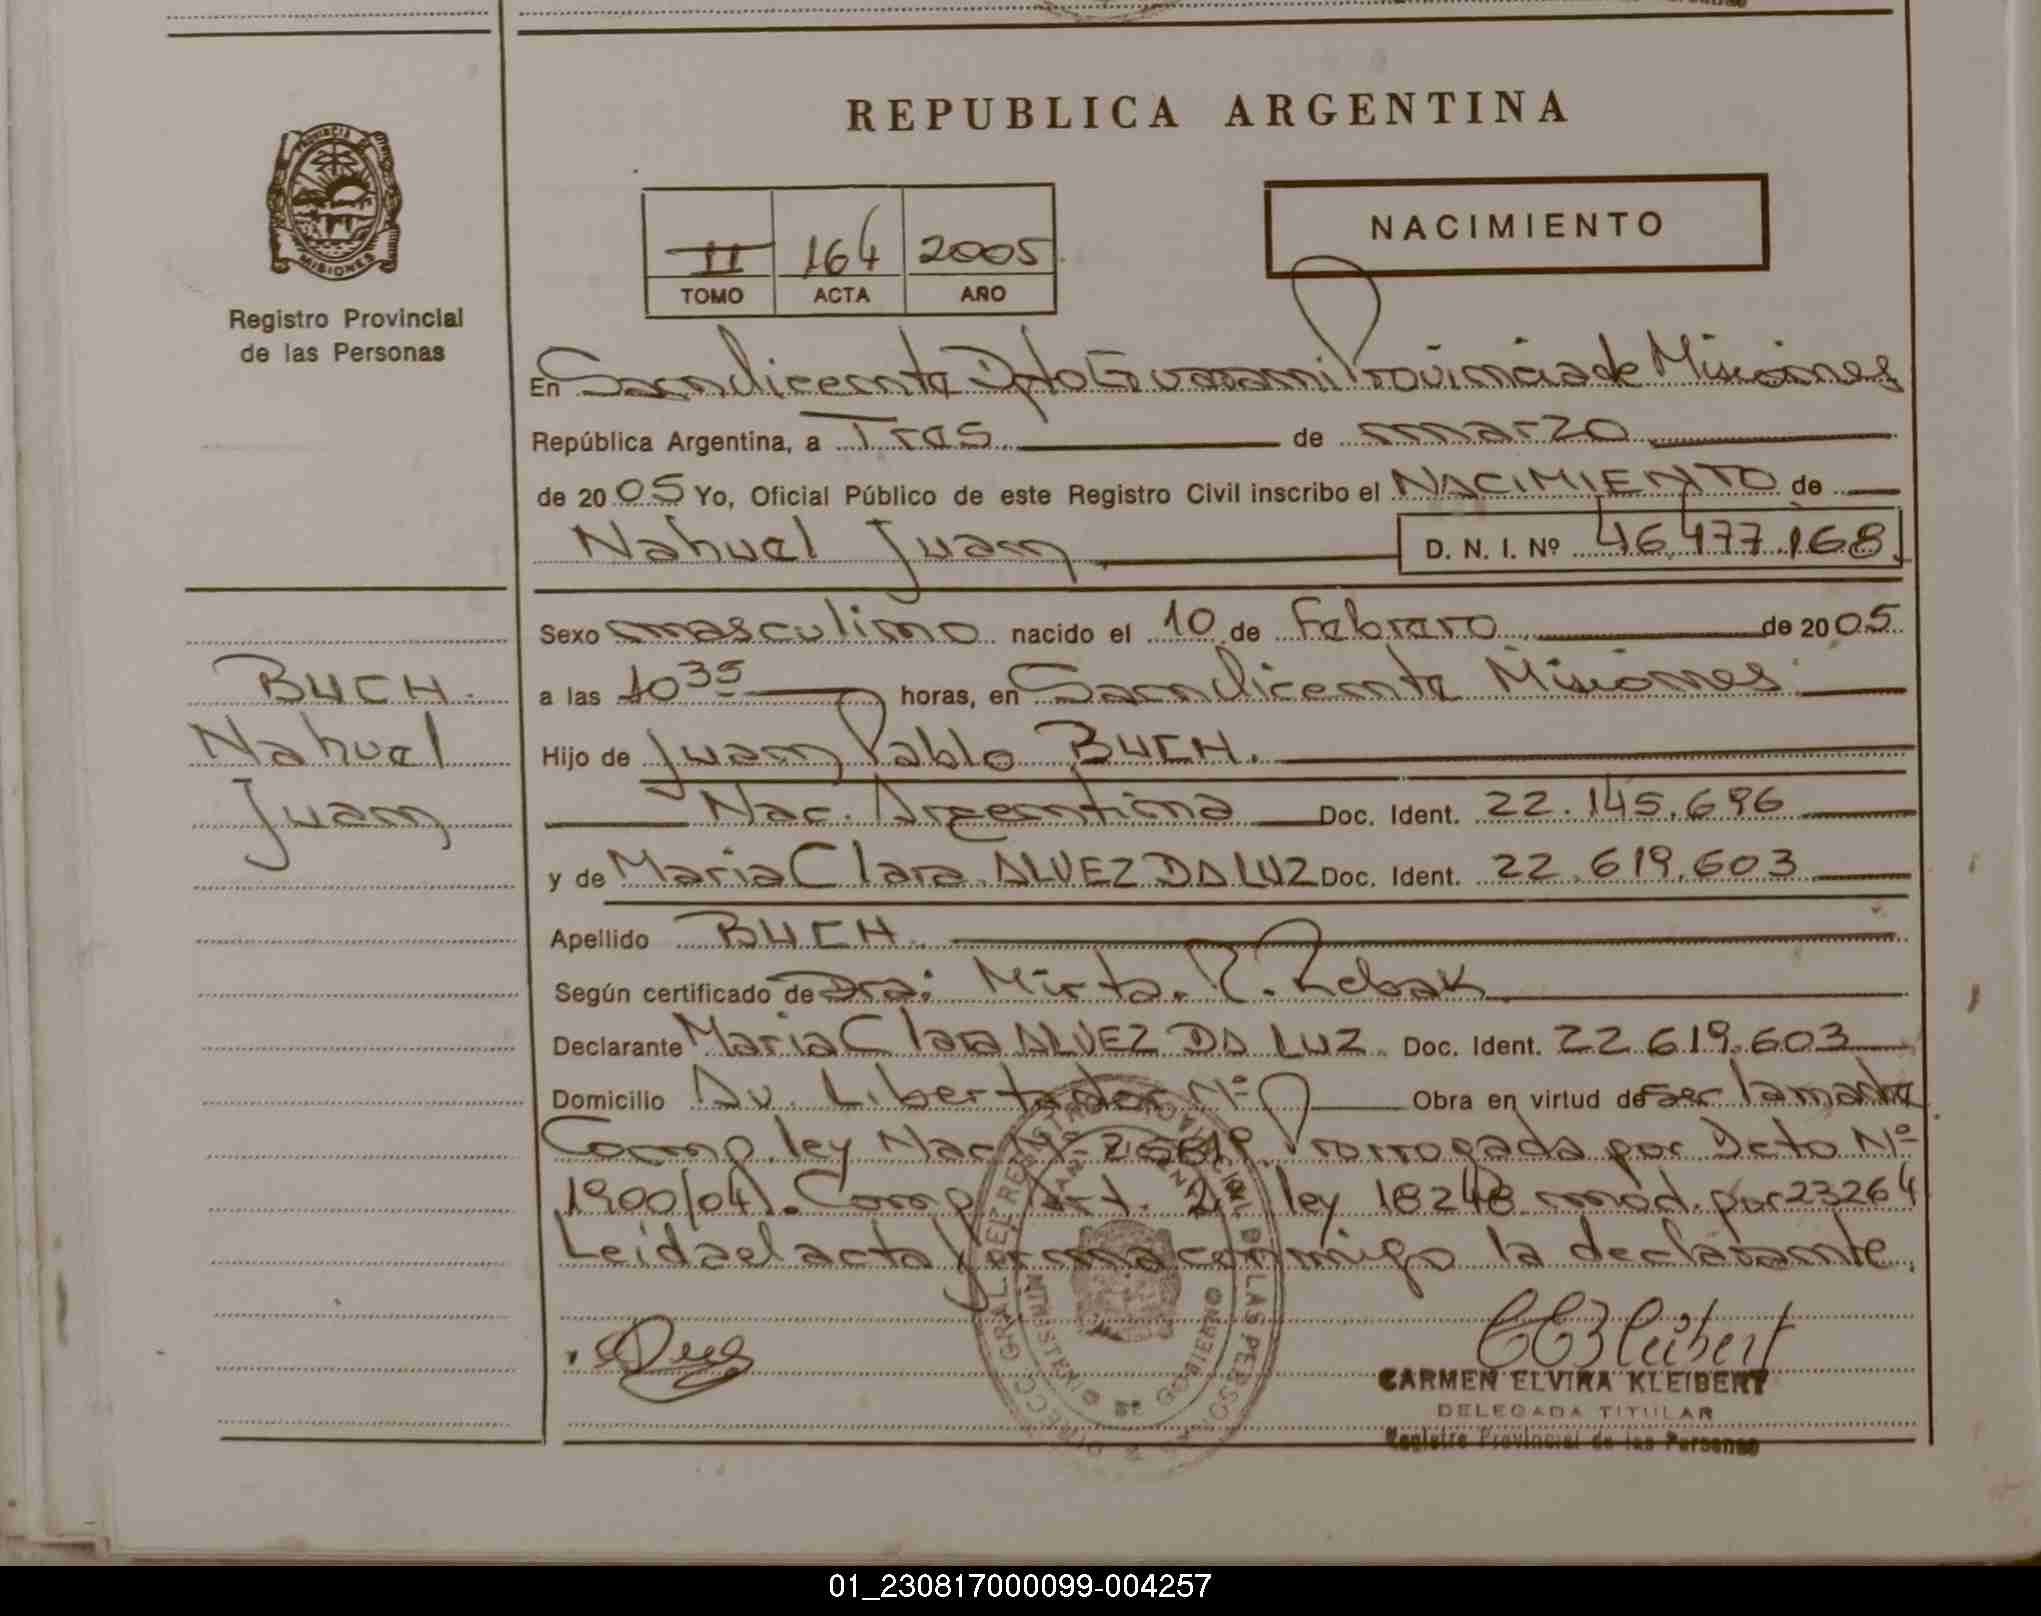 REPUBLICA ARGENTINA
PROVINCIA DE
MISIONES
Registro Provincial
de las Personas
II 164 2005
TOMO ACTA AÑO
NACIMIENTO
En San Vicente Dpto Guarani Provincia de Misiones
República Argentina, a Tres de marzo
de 2005 Yo, Oficial Público de este Registro Civil inscribo el NACIMIENTO de
Nahuel Juan D. N. I. Nº 46477168
Sexo masculino nacido el 10 de Febrero de 2005
a las 10 35 horas, en San Vicente Misiones
Hijo de Juan Pablo BUCH.
Nac. Argentina Doc. Ident. 22.145.696
y de Maria Clara ALVEZ DA LUZ Doc. Ident. 22.619.603
Apellido BUCH
Según certificado de Dra: Mirta. R. Rebak
Declarante Maria Clara ALVEZ DA LUZ Doc. Ident. 22.619.603
Domicilio Av. Libertador Nº Obra en virtud de ser la madre
Comp. ley Nac Nº 25819 Prorrogada por Dcto Nº
1900/04). Comp. Art. 2º ley 18248 mod. por 23264
Leida el acta firma conmigo la declarante.
BUCH.
Nahuel
Juan
CARMEN ELVIRA KLEIBERT
DELEGADA TITULAR
Registro Provincial de las Personas
01_230817000099-004257